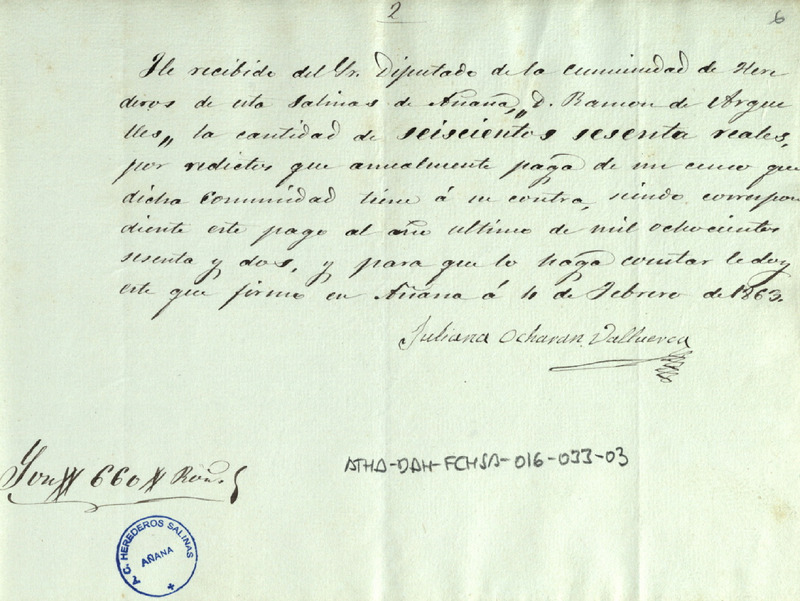 2
6
He recibido del Sr. Diputado de la comunidad de Here
deros de esta Salinas de Añana,, D. Ramon de Argue
lles,, la cantidad de seiscientos sesenta reales,
por redictos que anualmente paga de un censo que
dicha Comunidad tiene á su contra, siendo correspon
diente este pago al año ultimo de mil ochocientos
sesenta y dos, y para que lo haga constar le doy
este que firmo en Añana á 4 de Febrero de 1863.
Juliana Ocharan Valluerca
Son 660
ATHA-DAH-FCHSA-016-033-03
C. HEREDEROS SALINAS
AÑANA